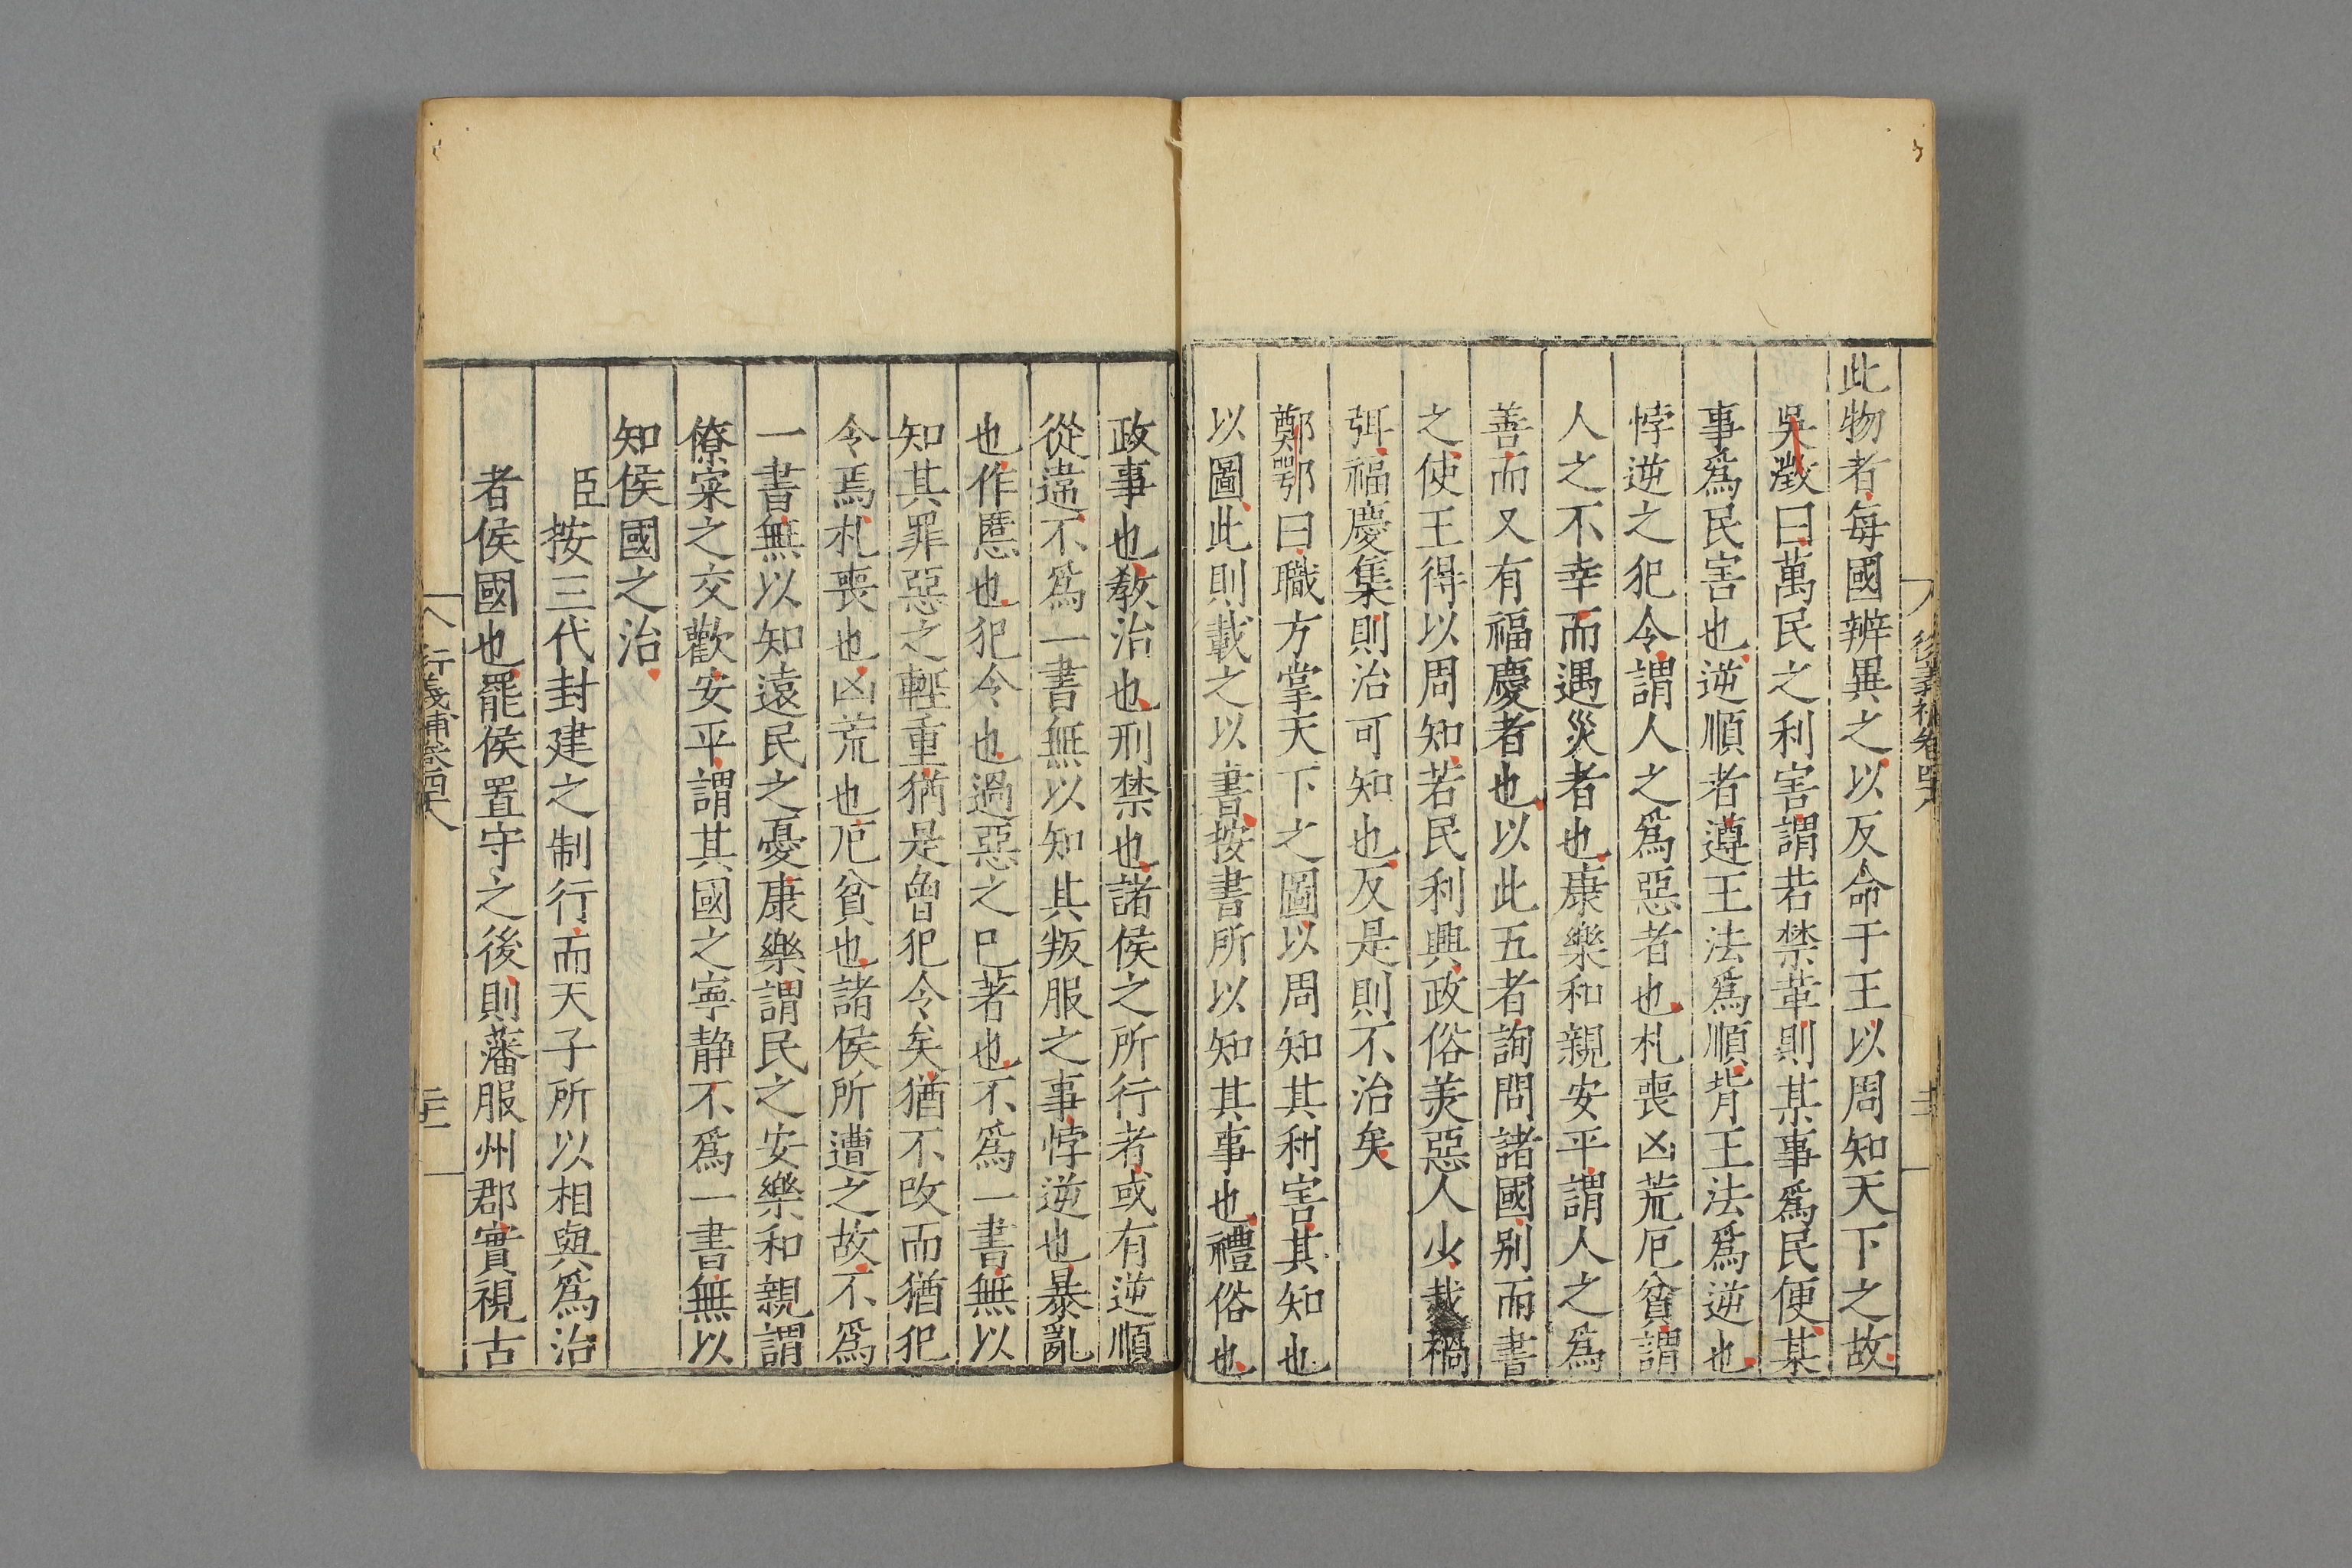 此物者每國辨異之以反命于王以周知天下之故
吳澂曰萬民之利害謂若禁革則某事爲民便某
事爲民害也逆順者遵王法爲順背王法爲逆也
悖逆之犯令謂人之爲惡者也札喪凶荒厄貧謂
人之不幸而遇災者也康樂和親安平謂人之爲
善而又有福慶者也以此五者詢問諸國别而書
之使王得以周知若民利興政俗美惡人少烖禍
弭福慶集則治可知也反是則不治矣
鄭鄂曰職方掌天下之圖以周知其利害其知也
以圖此則載之以書按書所以知其事也禮俗也
政事也敎治也刑禁也諸侯之所行者或有逆順
從違不爲一書無以知其叛服之事悖逆也暴亂
也作慝也犯令也過惡之巳著也不爲一書無以
知其罪惡之輕重猶是曾犯令矣猶不改而猶犯
令焉札喪也凶荒也厄貧也諸侯所遭之故不爲
一書無以知遠民之憂康樂謂民之安樂和親謂
僚寀之交歡安平謂其國之寧静不爲一書無以
知侯國之治
臣按三代封建之制行而天子所以相與爲治
者侯國也罷侯置守之後則藩服州郡實視古